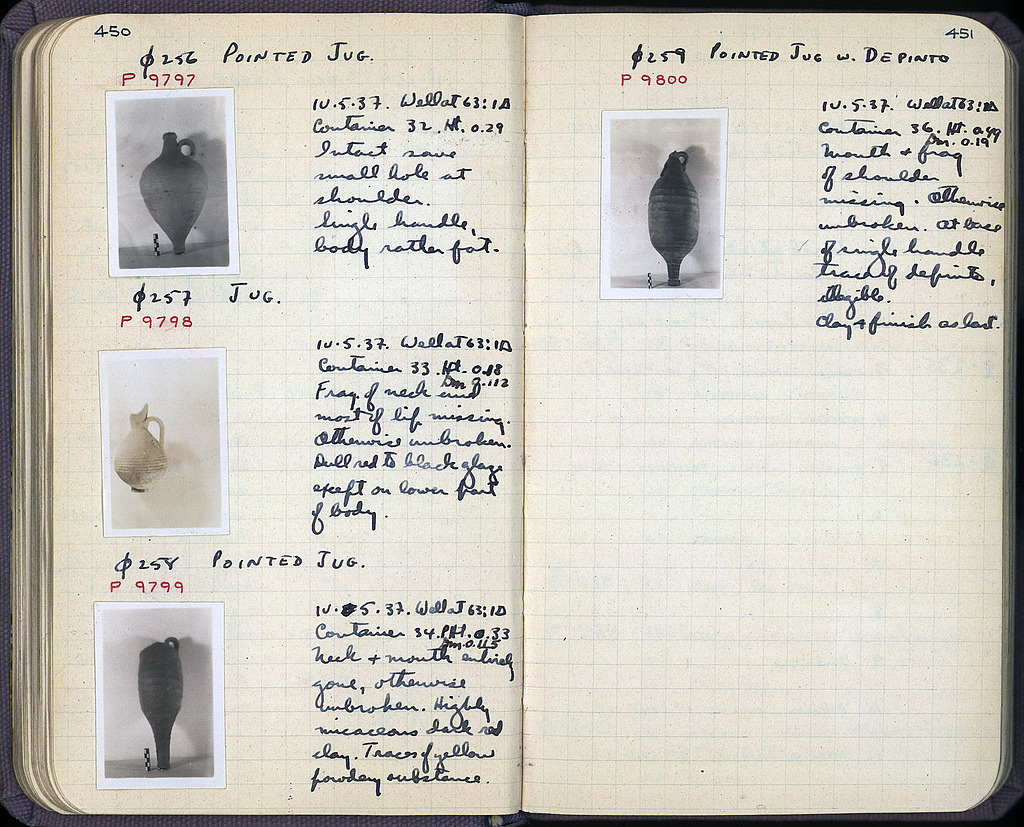 450
φ256 POINTED JUG.
P 9797
10.5.37. Well at 63:1Δ
Container 32. Ht. 0.29
Intact save
small hole at
shoulder.
Single handle,
body rather fat.
φ257 JUG.
P 9798
10.5.37. Well at 63:1Δ
Container 33. Ht. 0.18
Dm 0.112
Frag. of neck and
most of lip missing.
Otherwise unbroken.
Dull red to black glaze
except on lower part
of body.
φ258 POINTED JUG.
P 9799
10.5.37. Well at 63:1Δ
Container 34. PHt. 0.33
Dm. 0.115
Neck + mouth entirely
gone, otherwise
unbroken. Highly
micaceous dark red
clay. Traces of yellow
powdery substance.
451
φ259 POINTED JUG W. DEPINTO
P 9800
10.5.37. Well at 63:1Δ
Container 36. Ht. 0.49
Dm. 0.19
Mouth + frag
of shoulder
missing. Otherwise
unbroken. At base
of single handle
trace of depinto,
illegible.
Clay + finish as last.